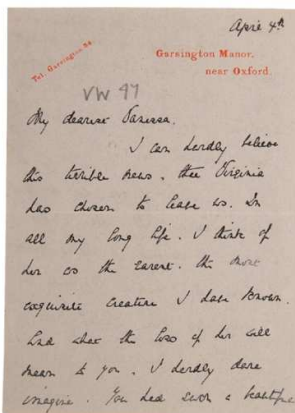 April 4th
Tel. Garsington 84.
Garsington Manor,
near Oxford.
VW 97
My dearest Vanessa.
I can hardly believe
this terrible news. that Virginia
has chosen to leave us. In
all my long life. I think of
her as the rarest. the most
exquisite creature I have known.
And what the loss of her will
mean to you. I hardly dare
imagine. You had such a beautiful